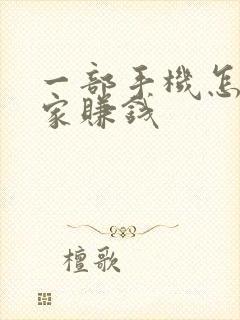 一部手機怎
家賺錢
檀歌